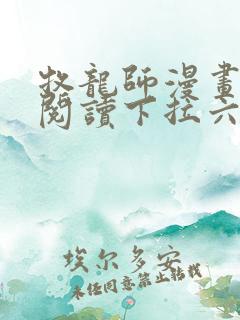 牧龍師漫畫
閱讀下拉六
埃尔多安
未经同意禁止转载